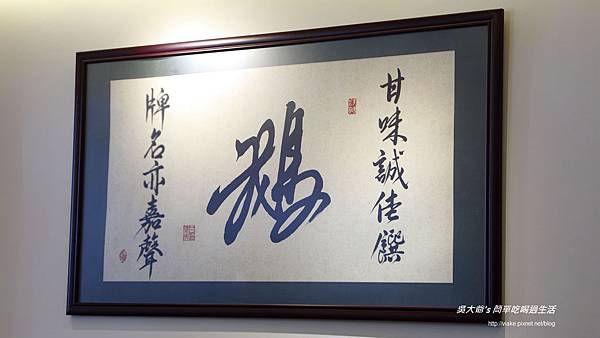 甘味誠佳饌
鵝
牌名亦嘉聲
吳大爺's 簡單吃喝過生活
http://viake.pixnet.net/blog